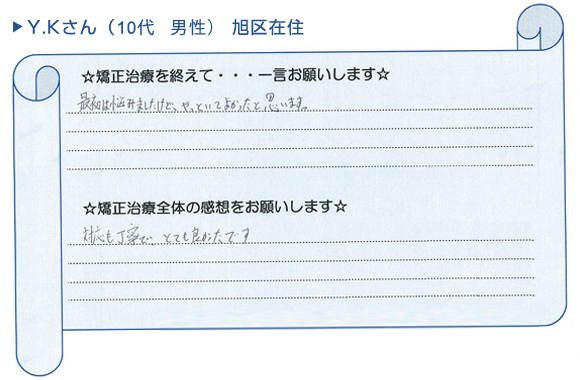 ▶Y.Kさん（10代　男性）　旭区在住
☆矯正治療を終えて・・・一言お願いします☆
最初は悩みましたけど、やっといてよかったと思います。
☆矯正治療全体の感想をお願いします☆
対応も丁寧で、とても良かったです